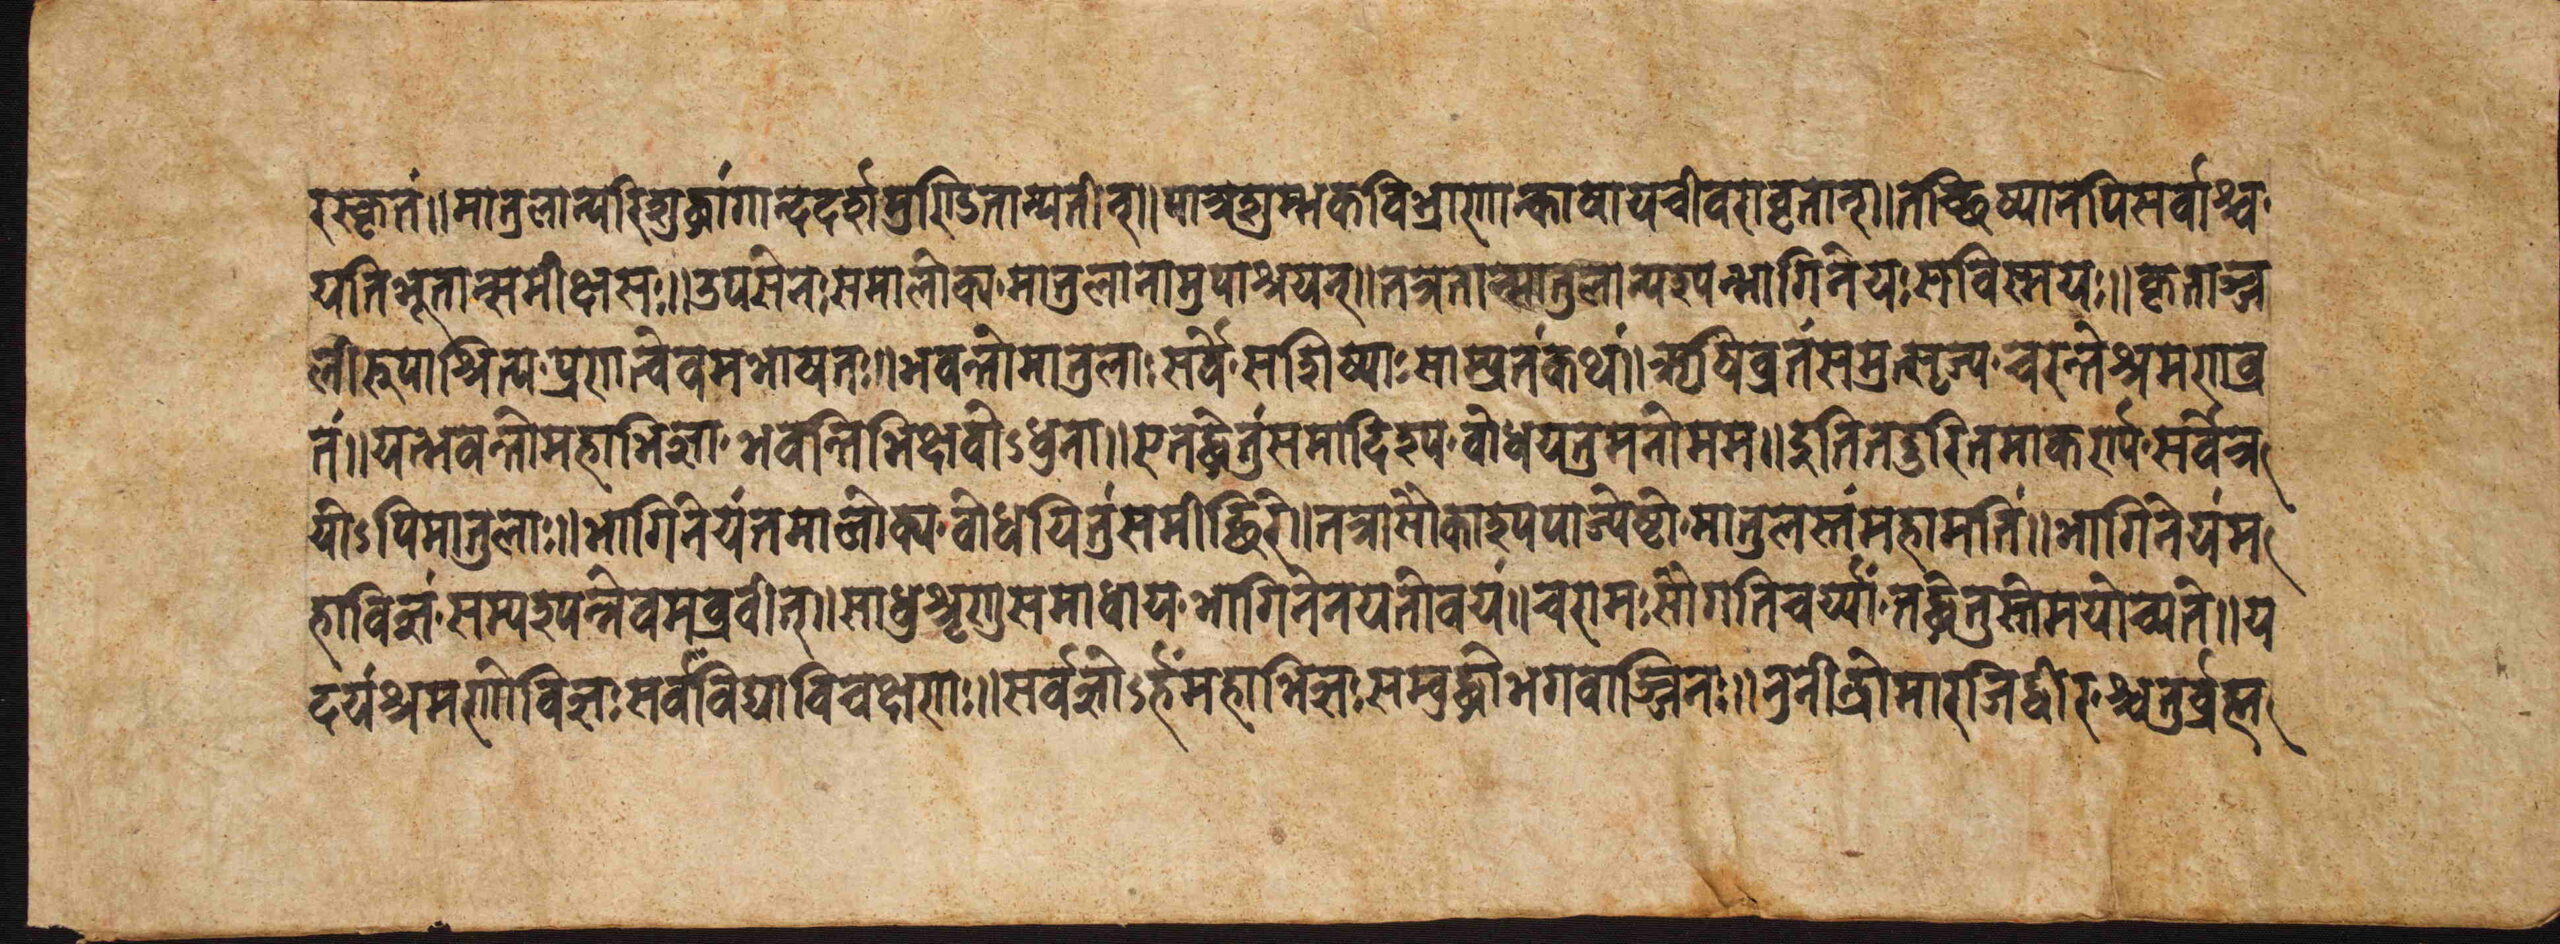 रस्कृतं॥मातुलान्परिशुद्धांगान्ददर्श मुण्डितान्यतीन्॥पात्रशुम्भकविभ्राणान्काषायचीवरावृतान्॥तच्छिष्यानपिसर्वांश्च
यतिभूतान्समीक्षसः॥उपसेनःसमालोक्य मातुलानामुपाश्रयत्॥तत्रतान्मातुलान्पश्यन्भागिनेयःसविस्मयः॥कृताञ्ज
लीरुपाश्रित्य प्रणत्वैवमभाषत॥भवन्तोमातुलाःसर्वे सशिष्याःसाम्प्रतंकथं॥ऋषिव्रतंसमुत्सृज्य चरन्तेश्रमणव्र
तं॥यद्भवन्तोमहाभिज्ञा भवन्तिभिक्षवोऽधुना॥एतद्धेतुंसमादिश्य बोधयतुमनोमम॥इतितदुदितमाकर्ण्य सर्वेत्र
योऽपिमातुलाः॥भागिनेयंतमालोक्य बोधयितुंसमीच्छिरे॥तत्रासौकाश्यपोज्येष्ठो मातुलस्तंमहामतिं॥भागिनेयंम
हाविज्ञं सम्पश्यन्नेवमब्रवीत्॥साधुशृणुसमाधाय भागिनेनयतोवयं॥चरामःसौगतेचर्य्यां तद्धेतुस्तेमयोच्यते॥य
दयंश्रमणोविज्ञःसर्वविद्याविचक्षणः॥सर्वज्ञोऽर्हंमहाभिज्ञःसम्बुद्धोभगवाञ्जिनः॥मुनीन्द्रोमारजिद्वीर श्चतुर्ब्रह्म